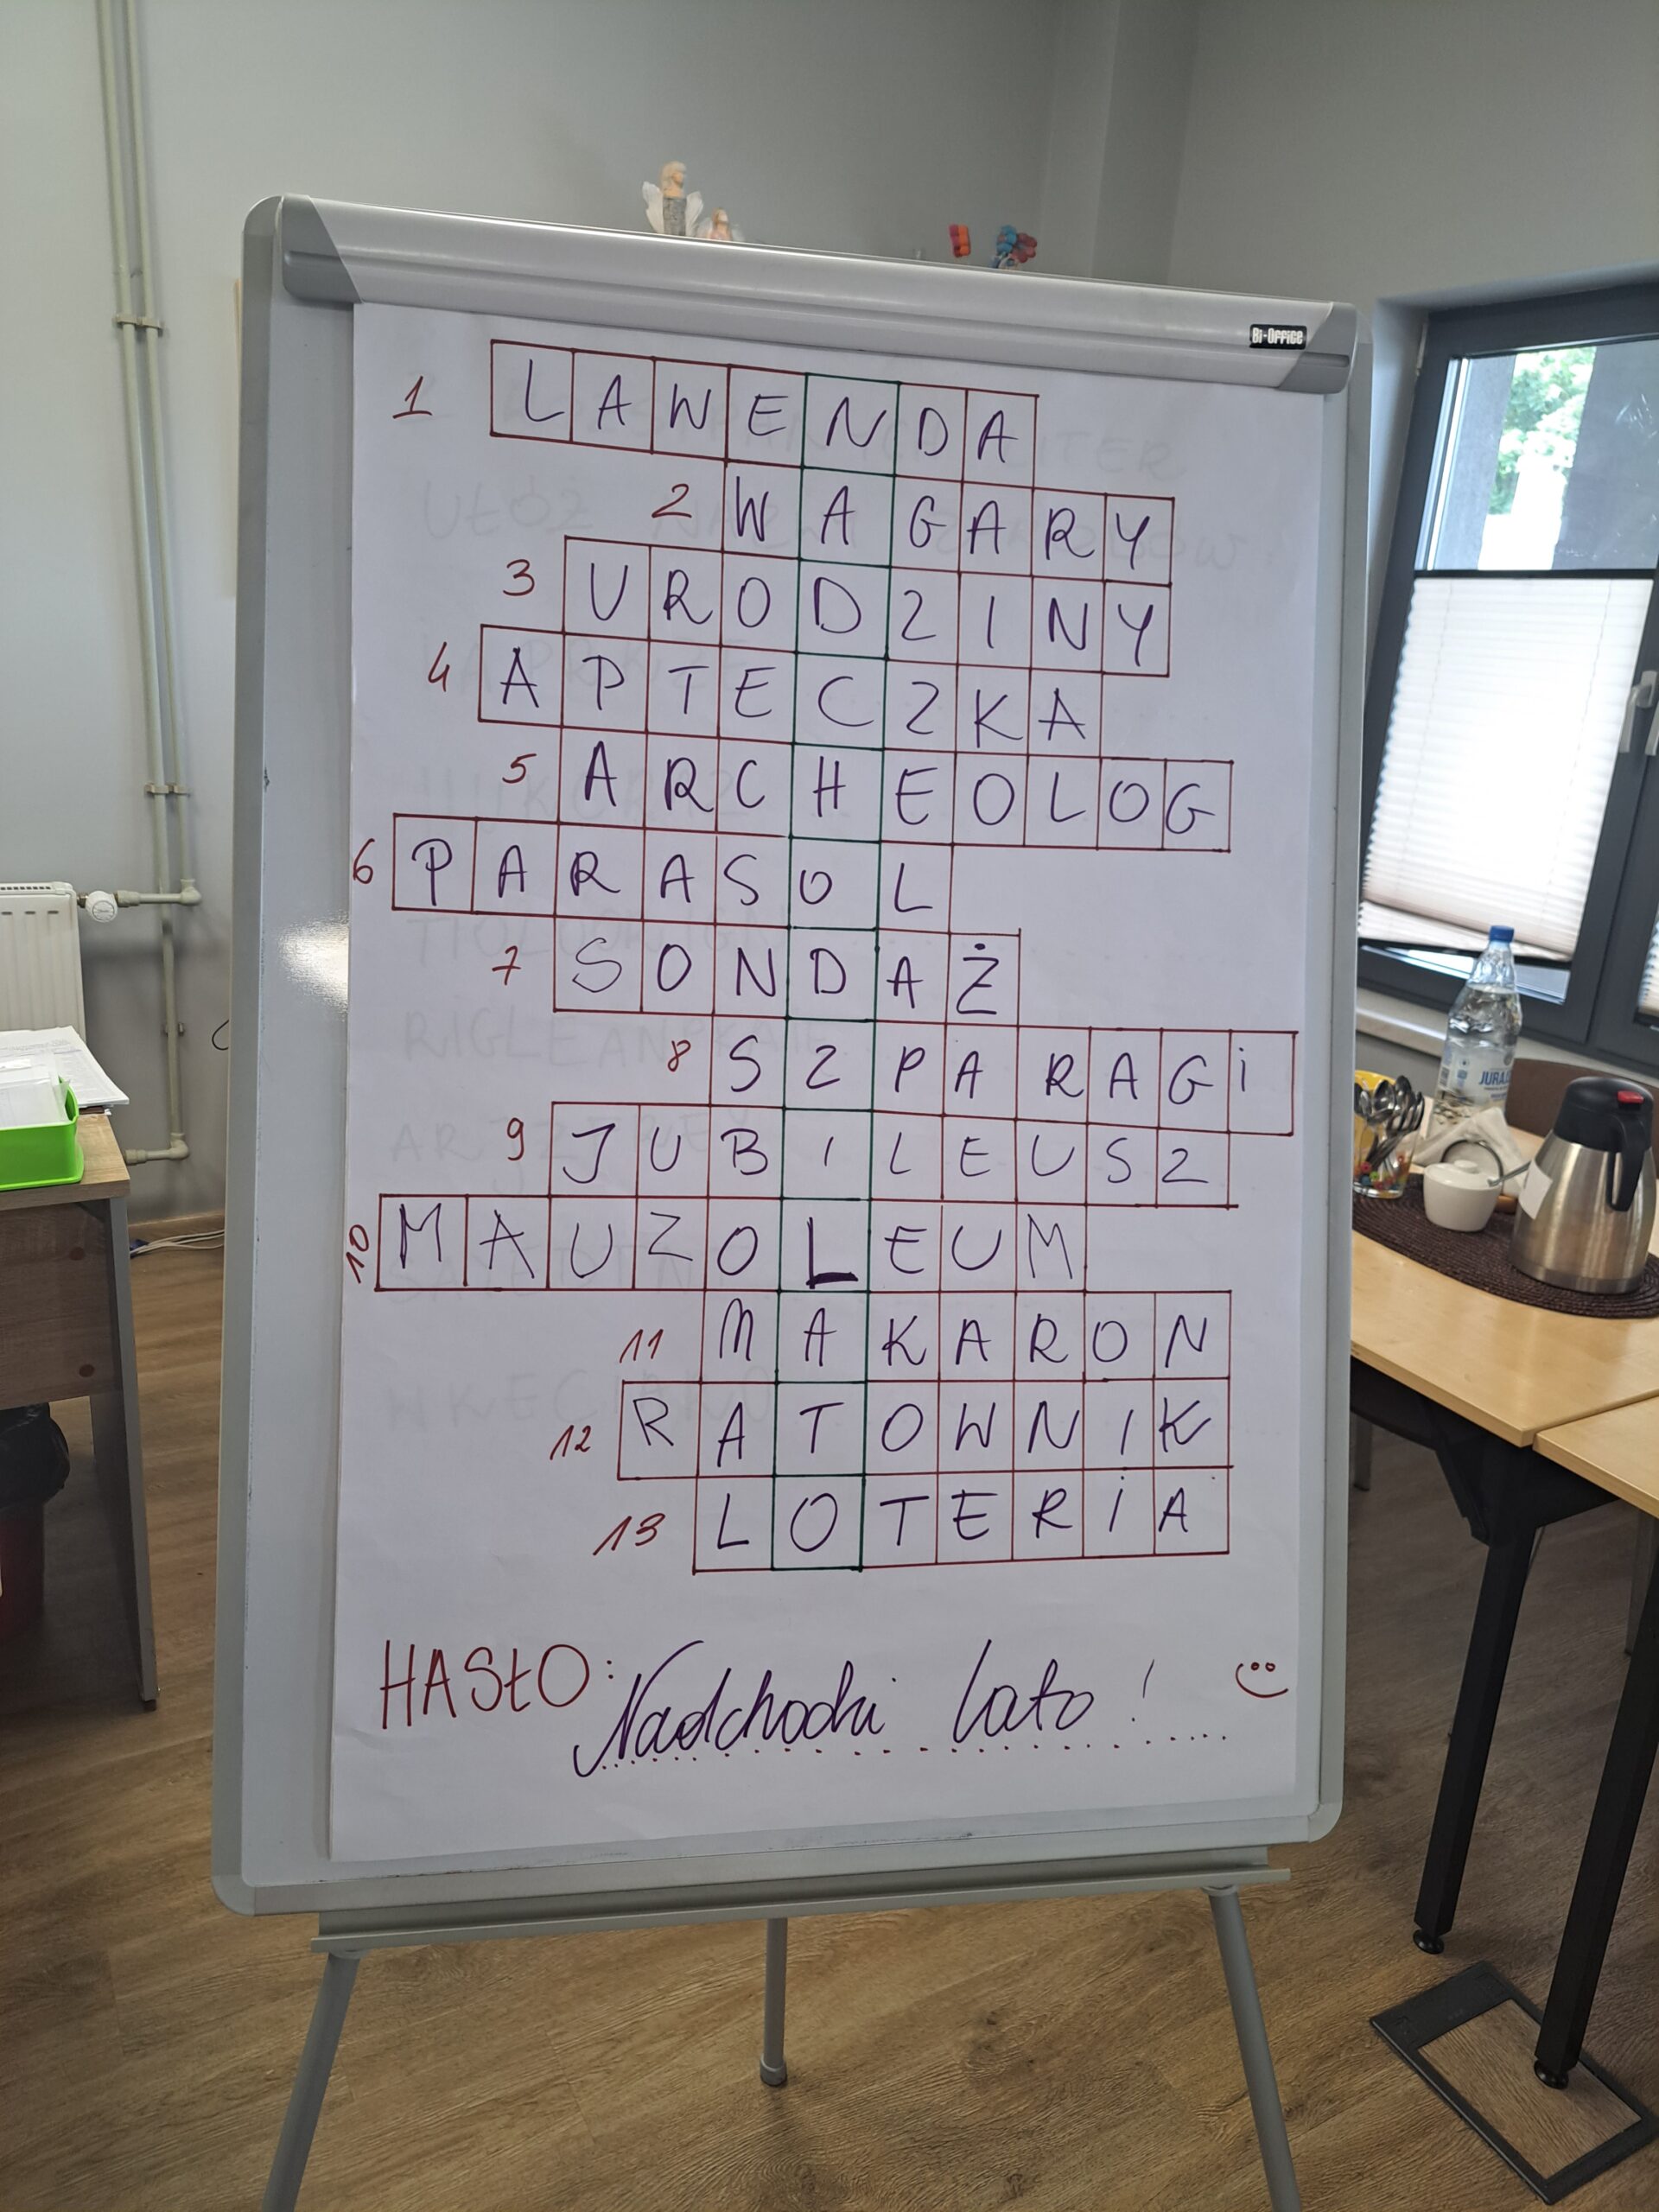 Bi-Office
1 LAWENDA
2 WAGARY
3 URODZINY
4 APTECZKA
5 ARCHEOLOG
6 PARASOL
7 SONDAŻ
8 SZPARAGi
9 JUBILEUSZ
10 MAUZOLEUM
11 MAKARON
12 RATOWNIK
13 LOTERiA
HASŁO: Nadchodzi lato!